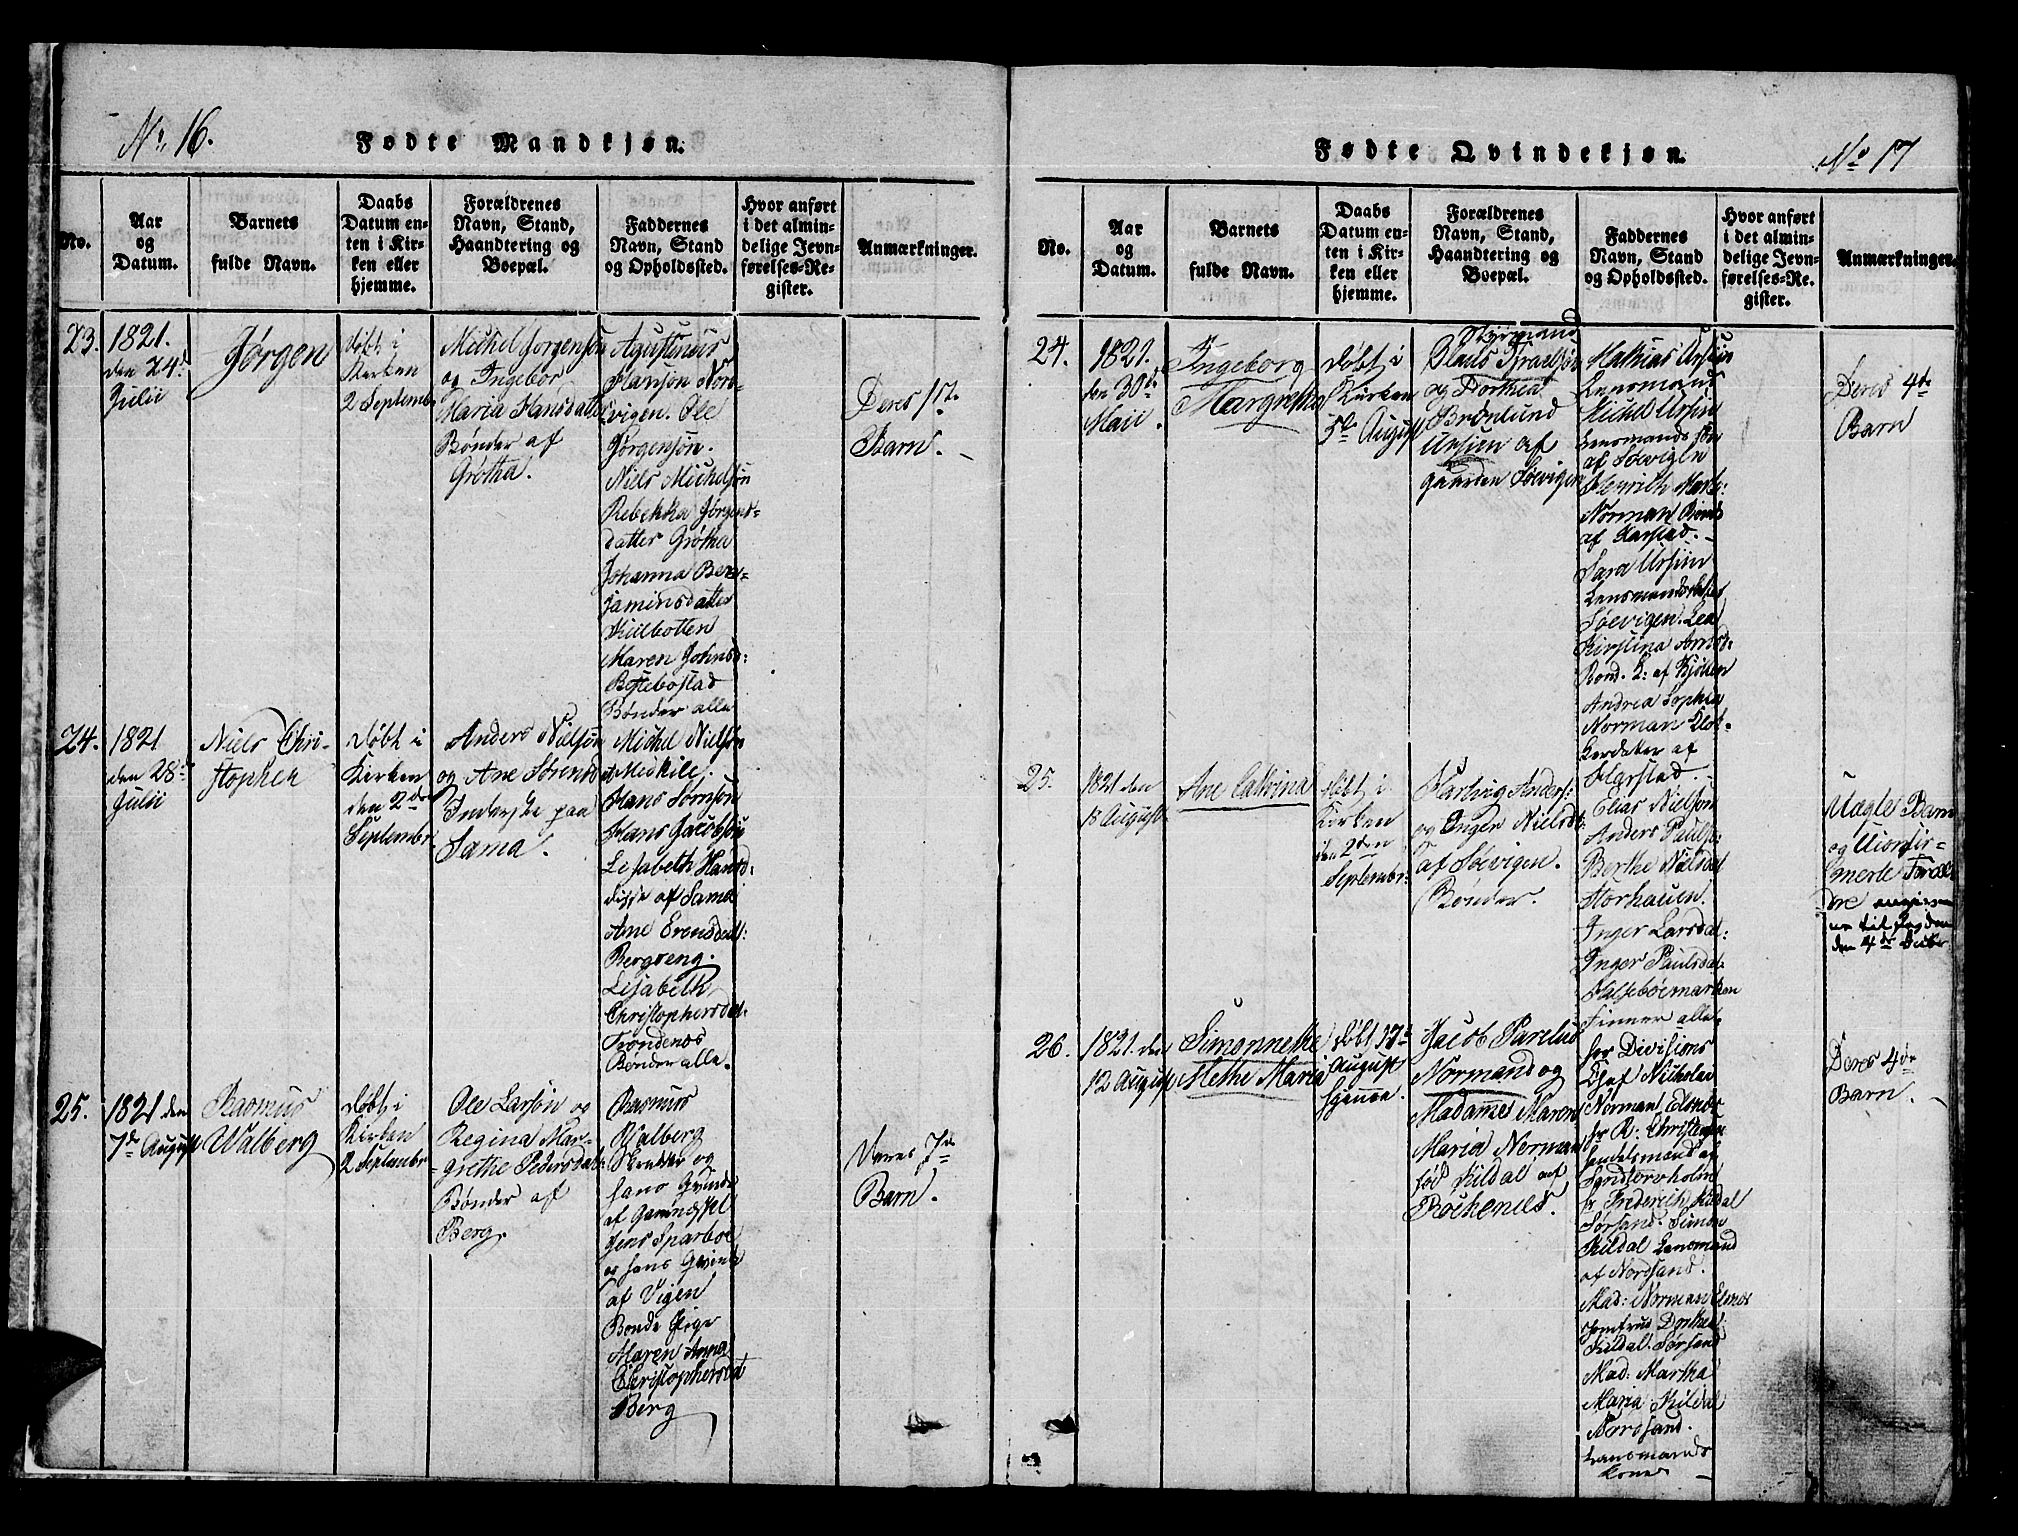 No. 16.
Fødte Mandkjøn.
No.
Aar
og
Datum.
Barnets
fulde Navn.
Daabs
Datum en-
ten i Kir-
ken eller
hjemme.
Forældrenes
Navn, Stand,
Haandtering og
Boepæl.
Faddernes
Navn, Stand
og Opholdssted.
Hvor anført
i det almin-
delige Jevn-
førelses-Re-
gister.
Anmærkninger.
23.
1821.
den 24de
Julii
Jørgen
døbt i
Kirken
2 Septembr
Michel Jørgensøn
og Ingebor
Maria Hansdatter
Bønder af
Grøtha.
Agustinus
Hansøn Nor-
vigen. Ole
Jørgensøn.
Niels Michelsøn
Rebekka Jørgens-
datter Grøtha
Johanna Ben-
jaminsdatter
Kiilbotten
Maren Johnsd:
Bessebostad
Bønder alle
Deres 1st.
Barn.
24.
1821
den 28de
Julii
Niels Chri-
stopher
døbt i
Kirken
den 2den
Septembr
Anders Nielsøn
og Ane Sørensd
Inderste paa
Sama.
Michel Nielsøn
Meskile.
Hans Sørnsøn
Hans Jacobsøn
Lisabeth Hansd:
disse af Sama
Ane Erensdatt:
Bergseng.
Lisabeth
Christophersdat.
Trondenæs
Bønder alle.
25.
1821 den
7de August
Rasmus
Walberg
døbt i
Kirken
2 Septembr
Ole Larsøn og
Regina Mar-
grethe Pedersdat:
Bønder af
Berg.
Rasmus
Walberg
Skredder og
hans Qvinde
af
Jens Sparboe
og hans Qvinde
af Vigen
Bonde Pige
Maren Anna
Christophersdat
Berg
Deres 7de
Barn.
Fødte Qvindekjøn.
No 17
No.
Aar
og
Datum.
Barnets
fulde Navn.
Daabs
Datum en-
ten i Kir-
ken eller
hjemme.
Forældrenes
Navn, Stand,
Haandtering og
Boepæl.
Faddernes
Navn, Stand
og Opholdssted.
Hvor anført
i det almin-
delige Jevn-
førelses-Re-
gister.
Anmærkninger.
24.
1821.
den 30de
Maii.
Ingeborg
Margretha
døbt i
Kirken
5te August
Styrmand
Elias Israelsøn
og Dorthea
Brønlund
Ursien af
gaarden Søevigen
Mathias Ursiin
Lensmand
Michel Ursiin
Lensmands søn
af Søevigen
Henrich Mart:
Norman Bonde
af Harstad.
Sara Ursiin
Lensmands
Søevigen. Lea
Kirstina Arnsd:
Bond. K: af Kjøtten
Andrea Sophia
Norman Klok-
kerdatter af
Harstad.
Deres 4de
Barn
25.
1821 den
18 August
Ane Cathrina
døbt i
Kirken
den 2den
Septembr:
Hartvig Anders:
og Inger Nielsdt:
af Søevigen.
Bønder.
Elias Nielsøn
Anders Paulsø:
Berthe Nielsdat
Storhauen.
Inger Larsdat:
Inger Paulsdat
Halsebøemarken
Finner alle.
Uægte Barn
og Uconfir-
merte Foræl-
dre
til Fogden
den 4de
26.
1821. den
12 August
Simonnethe
Methe Maria
døbt 17de
August
hjemme.
Jacob Parelius
Normand og
Madamme Maren
Maria Norman
fød Kildal af
Røckenes.
hr Divisions
Chef Nicholai
Norman Elsnæs
hr R: Christensen
handelsmand af
Sandtorvholm
hr Frederich Kildal
Sørsand. Simon
Kildal Lensmand
af Nordsand.
Mad: Norman Elsnæs
Jomfrue Dorthea
Kildal. Sørsand
Mad: Martha
Maria Kildal
Nordsand.
Lensmands
kone
Deres 4de
Barn.